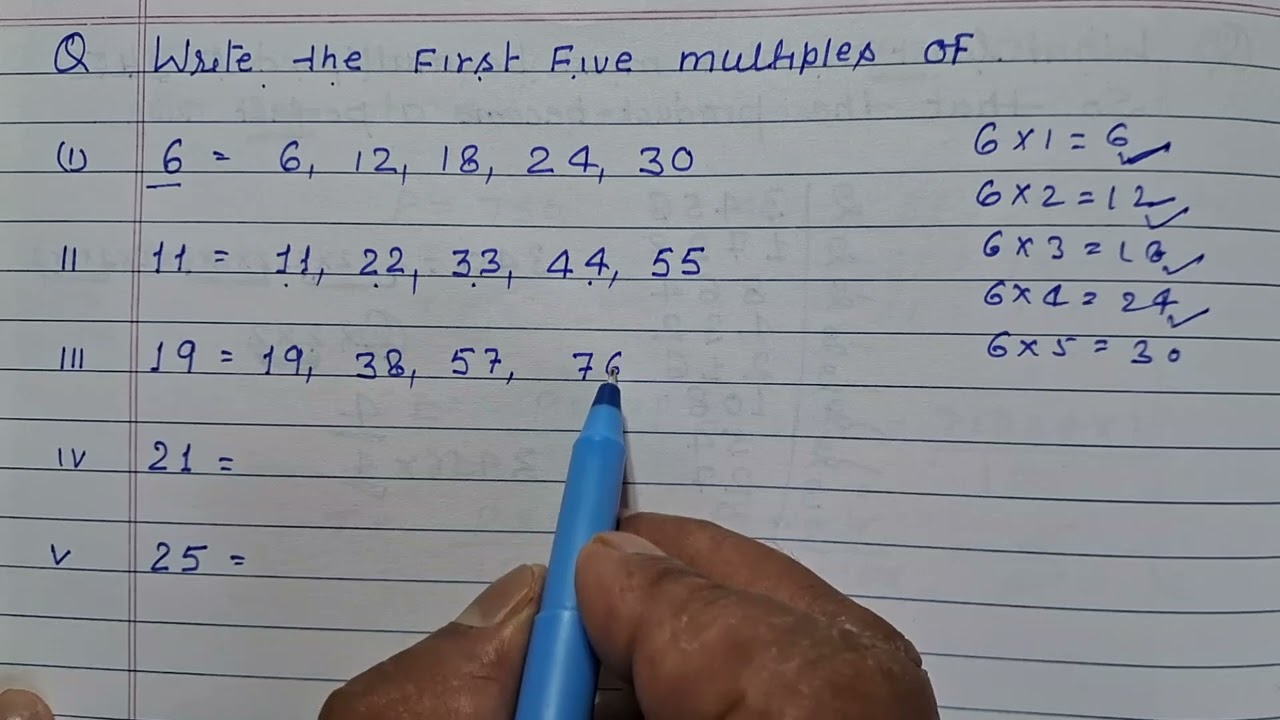 Q Write the First Five multiples of
(i) 6 = 6, 12, 18, 24, 30
6 x 1 = 6
6 x 2 = 12
II 11 = 11, 22, 33, 44, 55
6 x 3 = 18
6 x 4 = 24
III 19 = 19, 38, 57, 76
6 x 5 = 30
IV 21 =
V 25 =